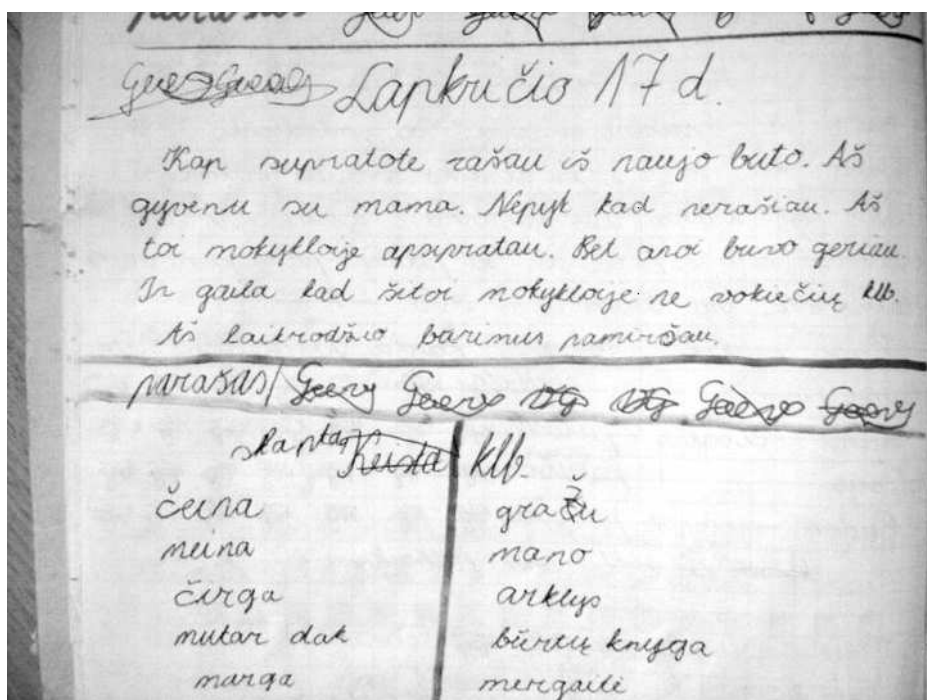 Lapkričio 17 d.
Kap supratote rašau iš naujo buto. Aš
gyvenu su mama. Nepyk kad nerašiau. Aš
toi mokykloije apsipratau. Bet anoi buvo geriau.
Ir gaila kad šitoi mokykloije ne vokiečių klb.
Aš laikrodžio barimus pamiršau.
parašas/
slapta Keista klb.
čeina gražu
meina mano
čirga arklys
mutar dak būrtų knyga
marga mergaitė